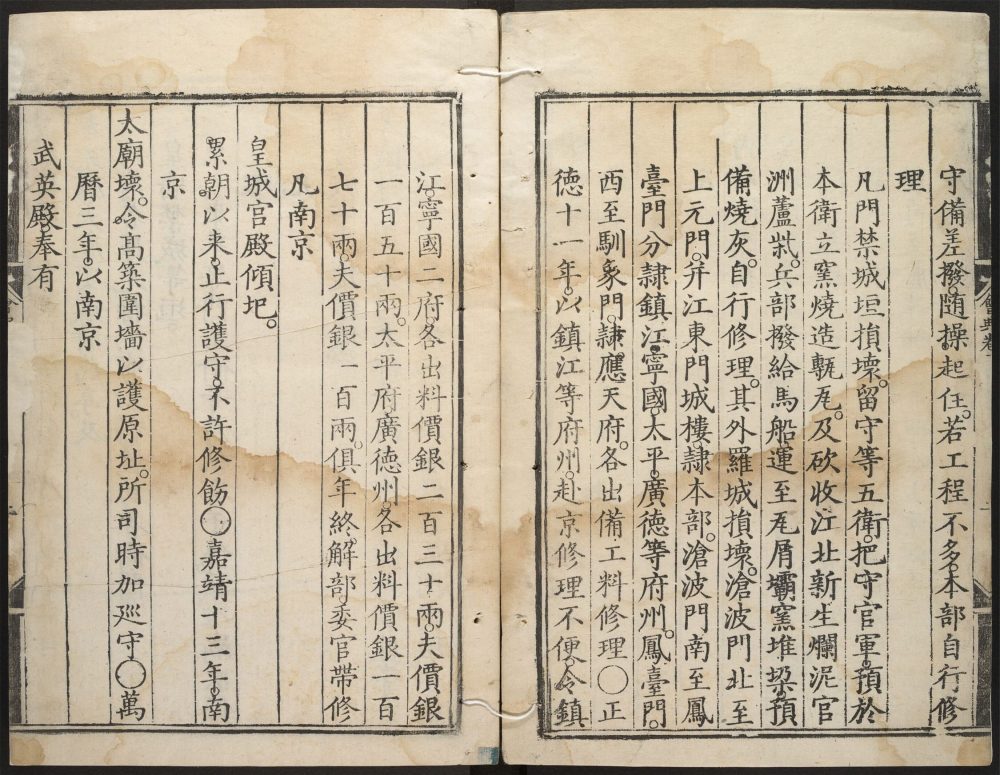 守備差撥。隨操。起住。若工程不多。本部自行修
理
凡門禁城垣損壞。留守等五衛。把守官軍。預於
本衛立窯燒造甎瓦。及砍收江北新生爛泥官
洲蘆柴。兵部撥給馬船。運至瓦屑壩窯堆垛。預
備燒灰。自行修理。其外羅城損壞。滄波門北至
上元門。并江東門城樓。隸本部。滄波門南至鳳
臺門。分隸鎮江寧國。太平。廣德等府州。鳳臺門。
西至馴象門。隸應天府。各出備工料修理〇正
德十一年。以鎮江等府州。赴京修理不便。令鎮
江。寧國二府。各出料價銀二百三十兩。夫價銀
一百五十兩。太平府廣德州。各出料價銀一百
七十兩。夫價銀一百兩。俱年終。解部委官帶修
凡南京
皇城宮殿傾圮。
累朝以來。止行護守。不許修飭〇嘉靖十三年。南
京
太廟壞。令高築圍墻。以護原址。所司時加巡守〇萬
曆三年。以南京
武英殿。奉有
會典卷